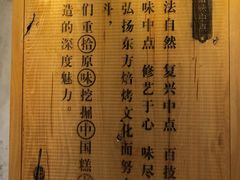 法自然 复兴中点 百技
味中点 修艺于心 味尽
弘扬东方焙烤文化而努
斗，
们重拾原味挖掘中国糕
造的深度魅力。